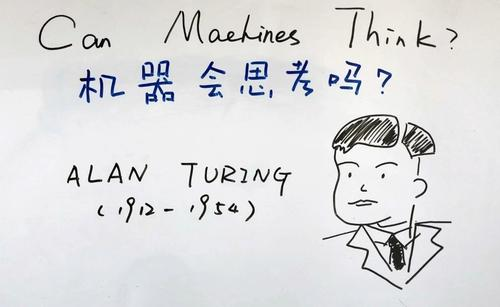 Can Machines Think?
机器会思考吗?
ALAN TURING
(1912-1954)